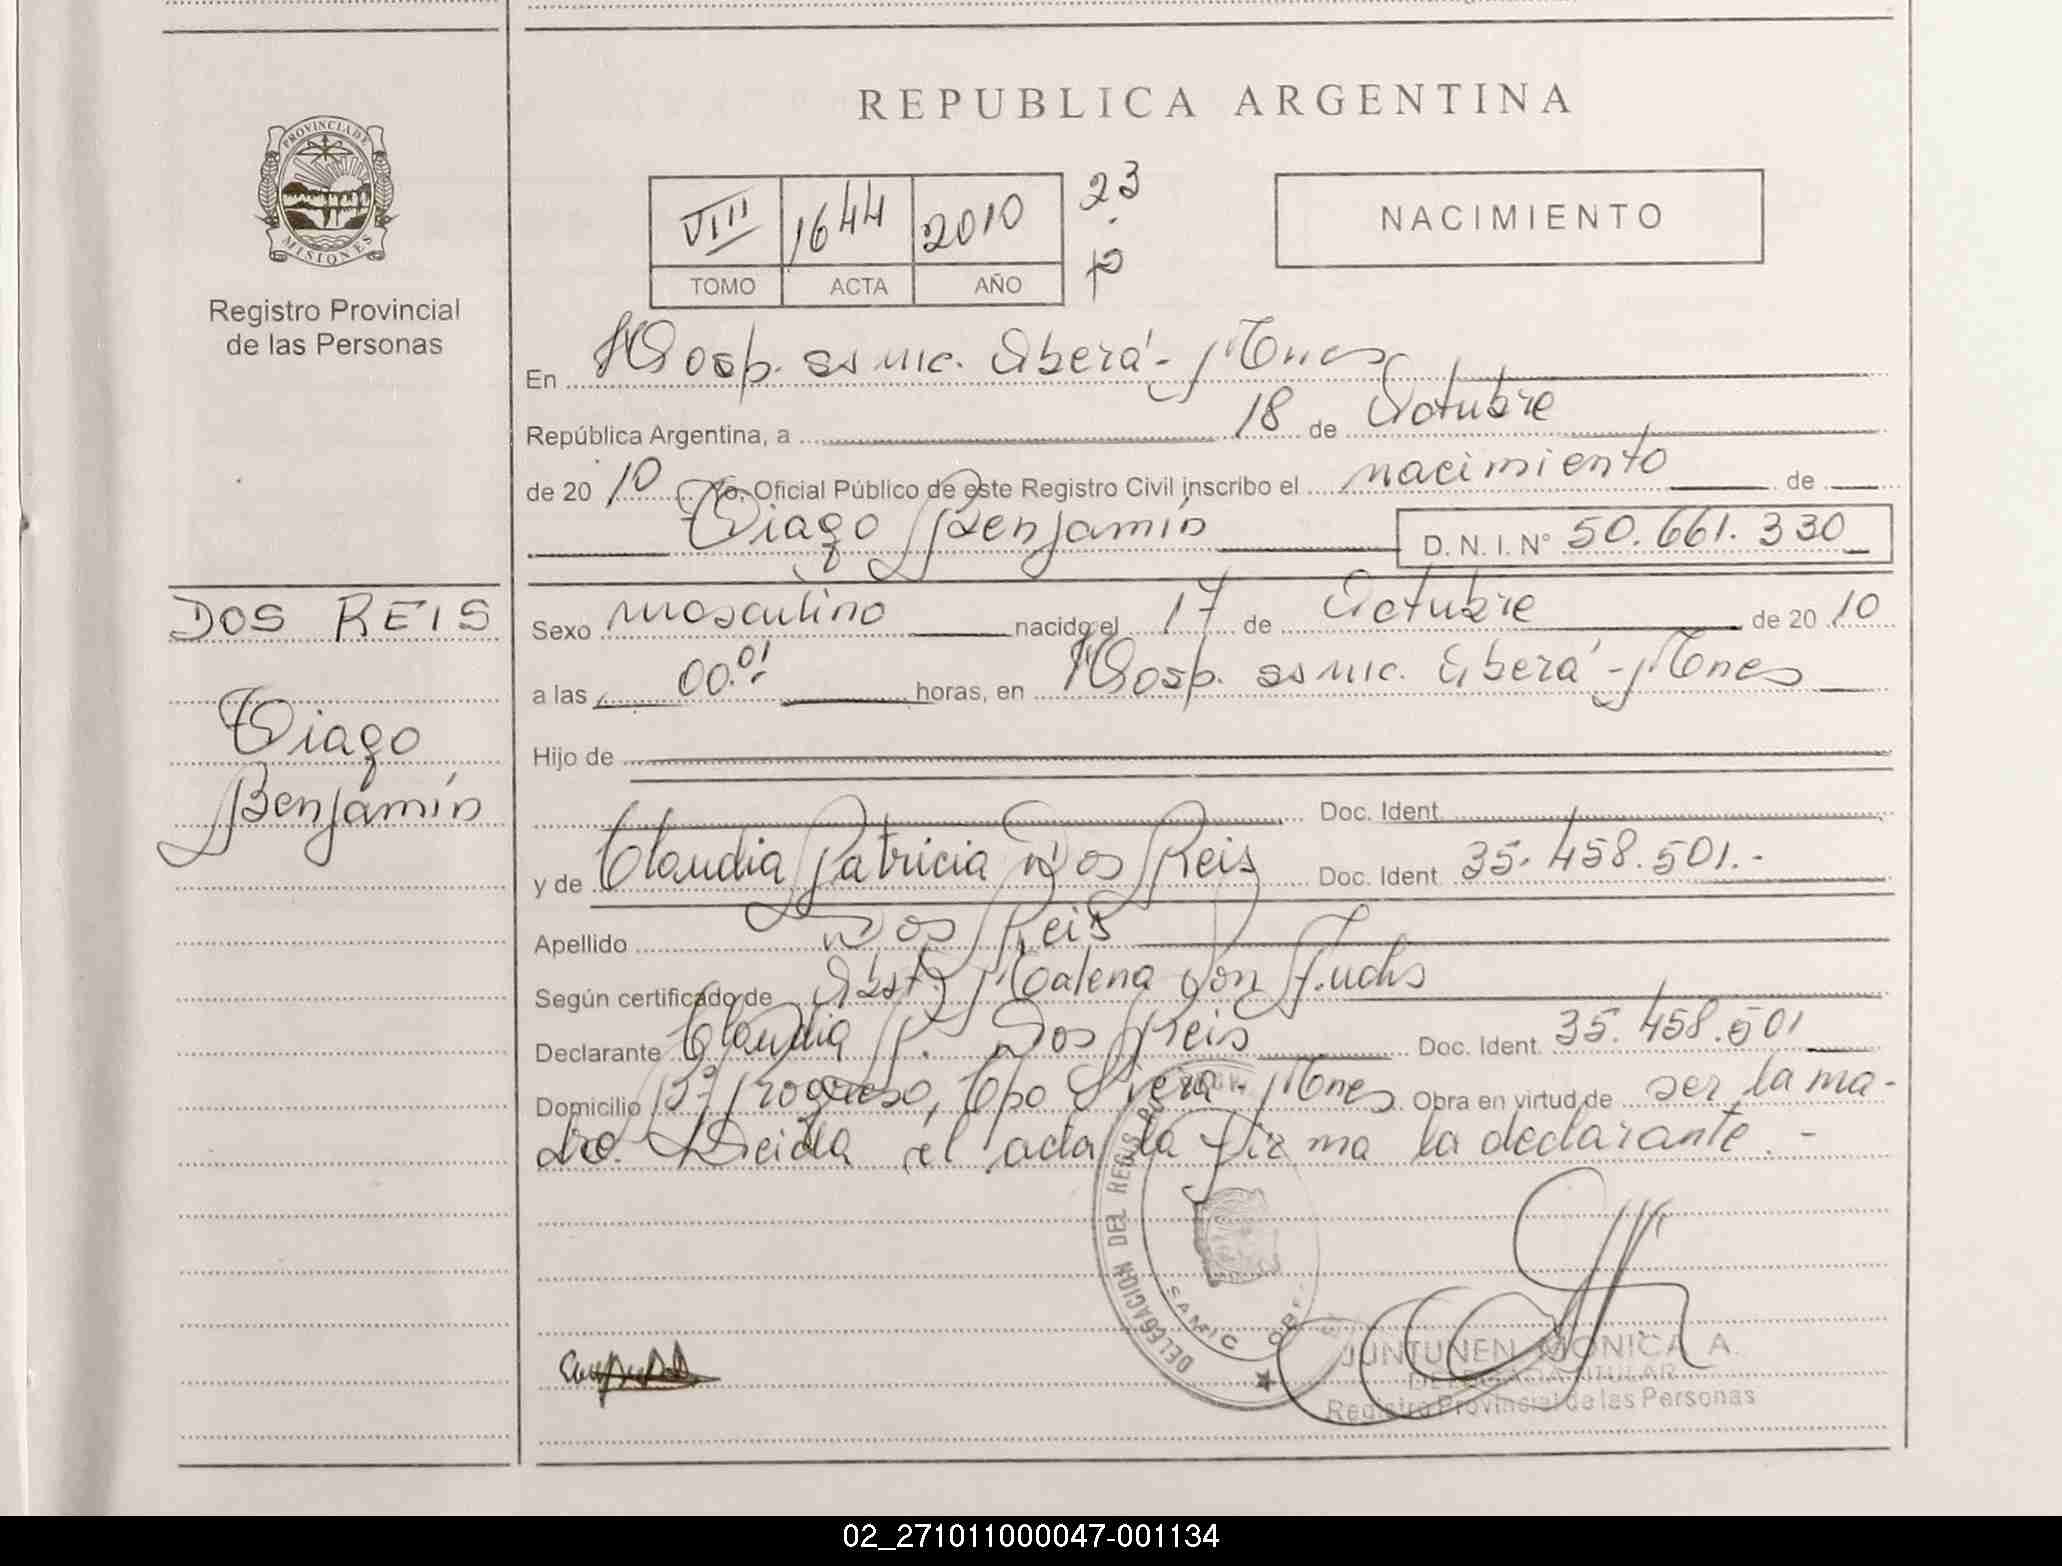 REPUBLICA ARGENTINA
PROVINCIA DE
MISIONES
Registro Provincial
de las Personas
VIII 1644 2010 23
TOMO ACTA AÑO
NACIMIENTO
En Hosp. SAMIC. Oberá - Mnes
República Argentina, a 18 de Octubre
de 20 10 Yo, Oficial Público de este Registro Civil inscribo el nacimiento de
Tiago Benjamín D. N. I. N° 50.661.330
DOS REIS
Tiago
Benjamín
Sexo masculino nacido el 17 de Octubre de 20 10
a las 00.01 horas, en Hosp. SAMIC. Oberá - Mnes
Hijo de
Doc. Ident.
y de Claudia Patricia Dos Reis Doc. Ident. 35.458.501.-
Apellido Dos Reis
Según certificado de Obst. Malena Von Fuchs
Declarante Claudia P. Dos Reis Doc. Ident. 35.458.501
Domicilio B° Progreso, Cpo Viera - Mnes Obra en virtud de ser la ma-
dre. Leída el acta la firma la declarante. -
DELEGACION DEL REGIS
SAMIC OBE
JUNTUNEN MONICA A.
DELEGADA TITULAR
Registro Provincial de las Personas
02_271011000047-001134